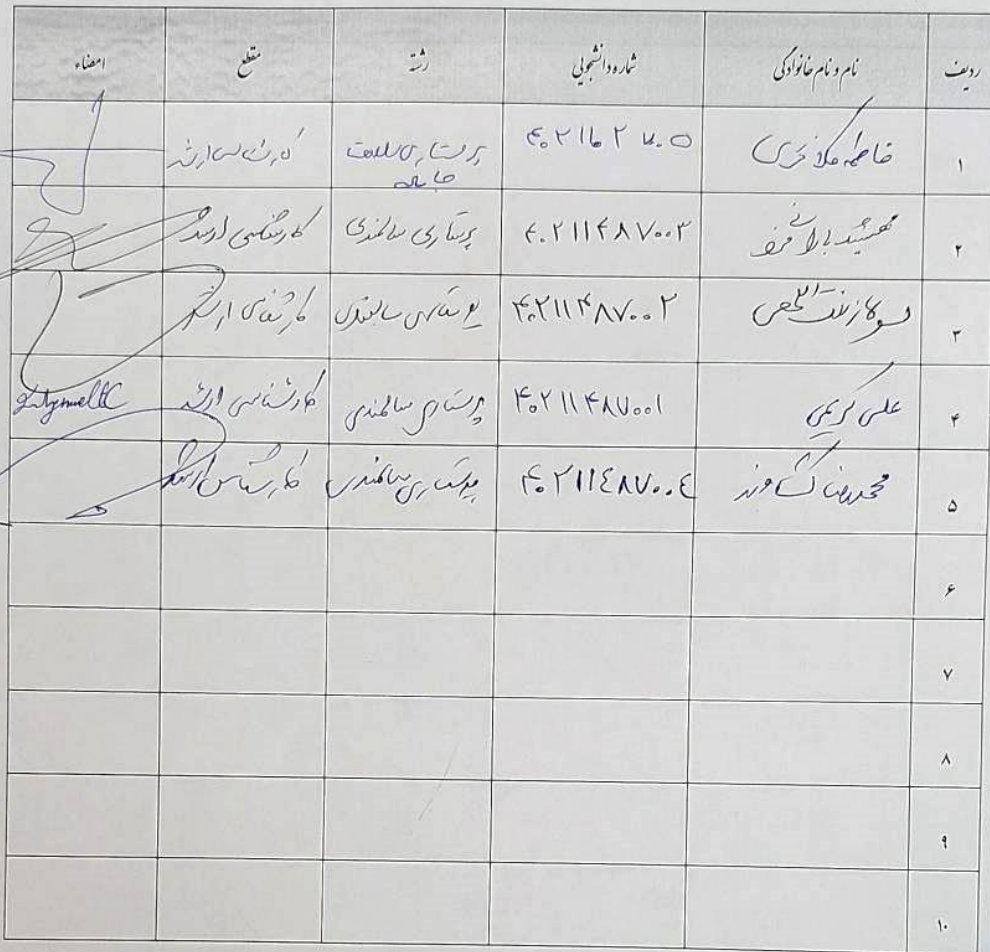 ردیف نام و نام خانوادگی شماره دانشجویی رشته مقطع امضاء
۱ فاطمه پرستاری سلامت کارشناسی ارشد
جامعه
۲ مهشید ۴۰۲۱۱۴۸۷۰۰۳ پرستاری سالمندی کارشناسی ارشد
۳ ۴۰۲۱۱۴۸۷۰۰۲ پرستاری سالمندی کارشناسی ارشد
۴ علی کریمی ۴۰۲۱۱۴۸۷۰۰۱ پرستاری سالمندی کارشناسی ارشد
۵ محمدرضا کشاورز ۴۰۲۱۱۴۸۷۰۰۴ پرستاری سالمندی کارشناسی ارشد
۶
۷
۸
۹
۱۰